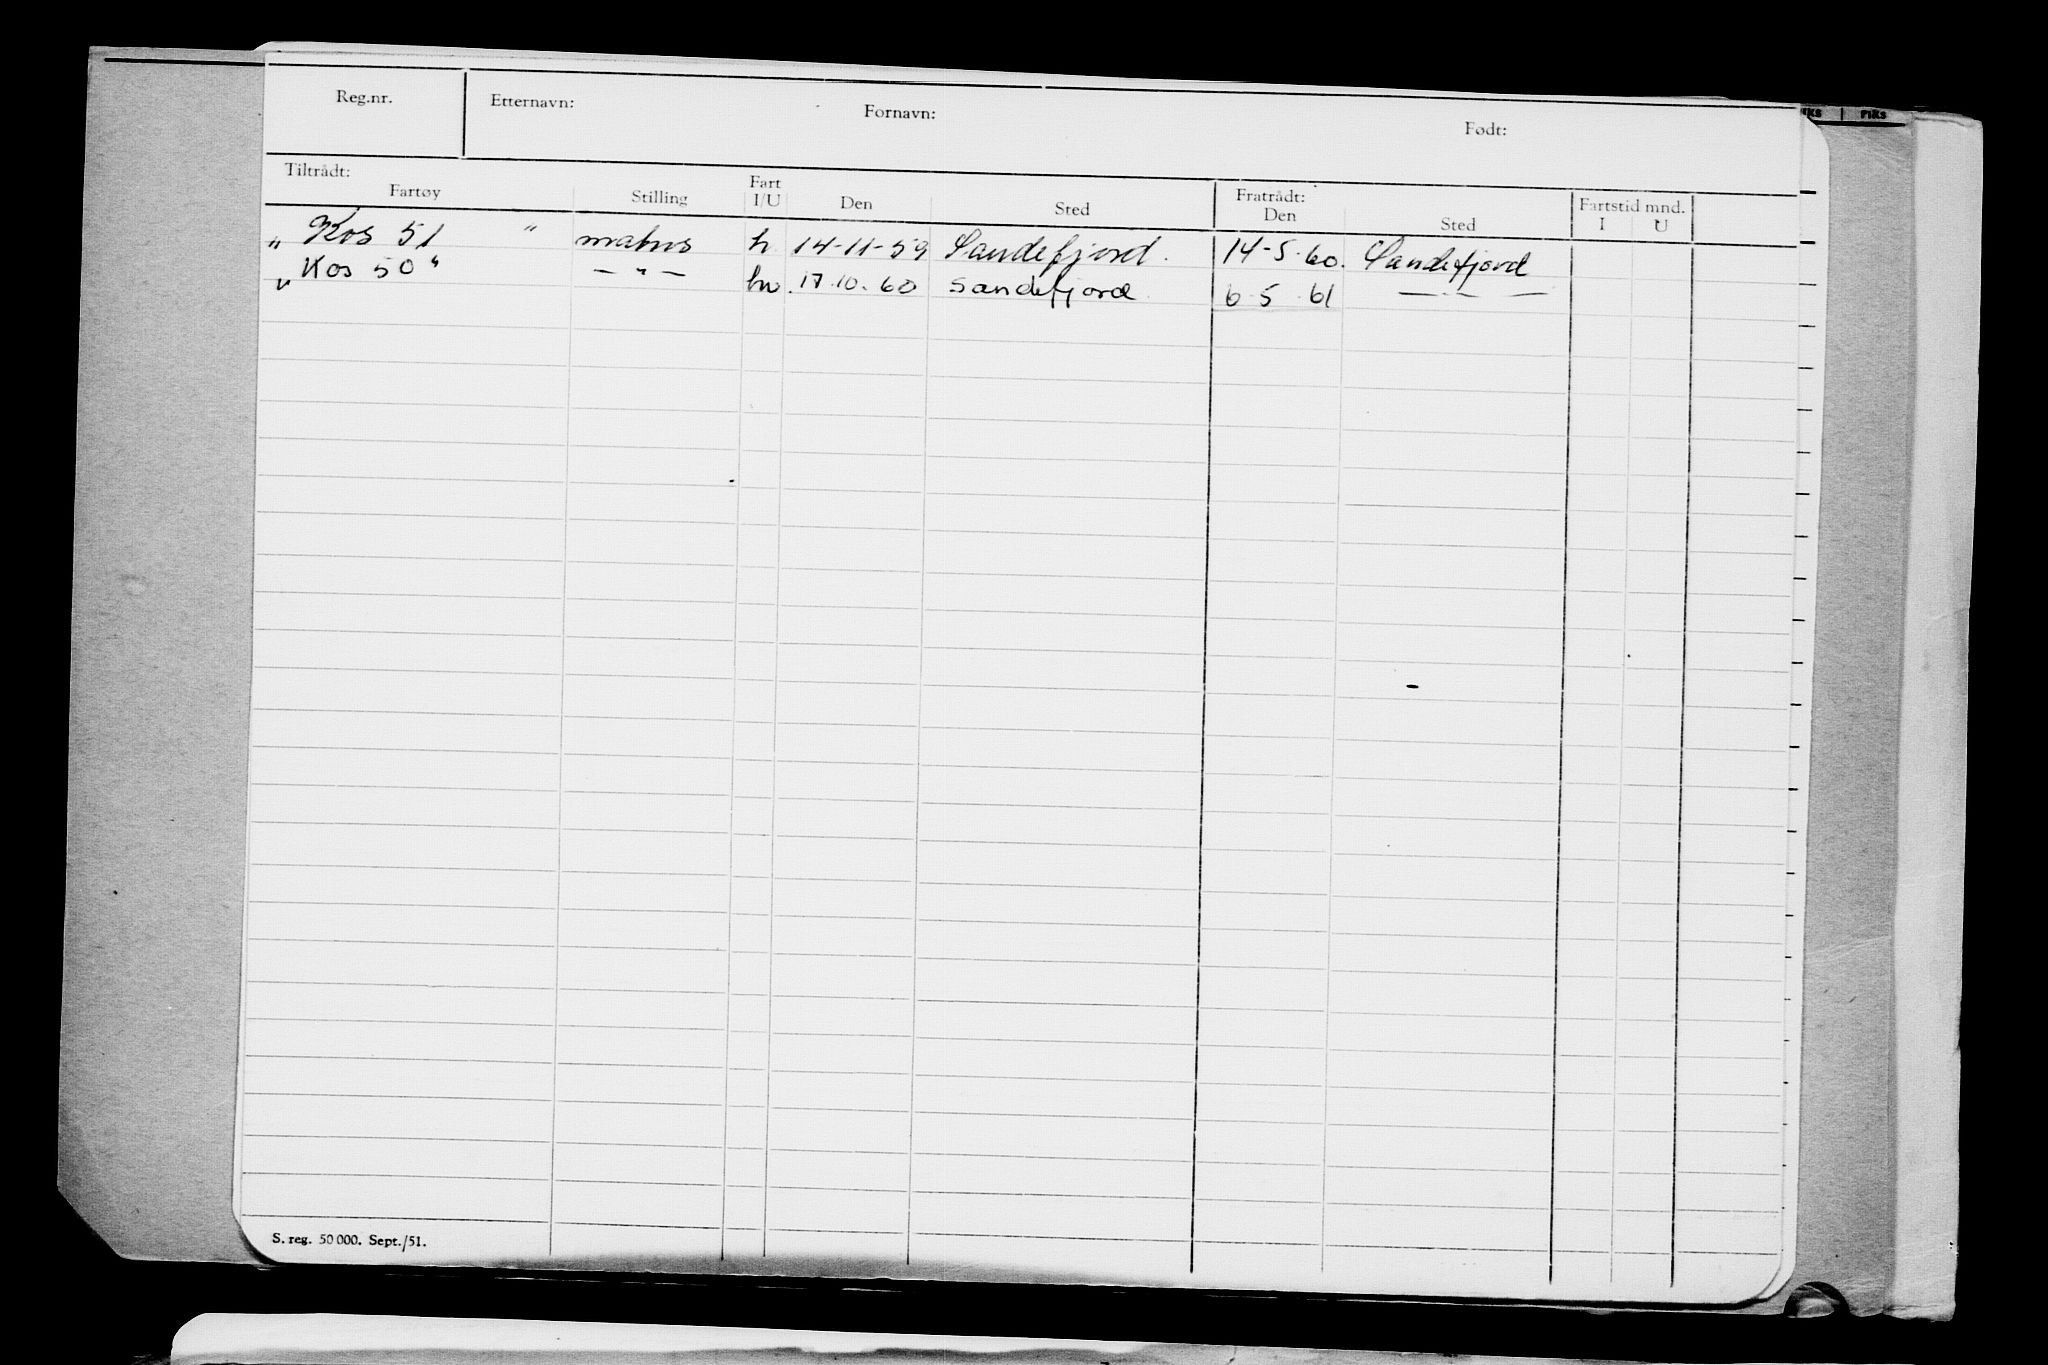 Reg.nr. Etternavn: Fornavn: Født:
Tiltrådt: Fratrådt:
Fartøy Stilling Fart I/U Den Sted Den Sted Fartstid mnd. I U
„ Kos 51 " h 14-11-59 Sandefjord. 14-5-60. Sandefjord
„ Kos 50 " — " — hv. 17.10.60 Sandefjord 6.5.61 — " —
S. reg. 50 000. Sept./51.